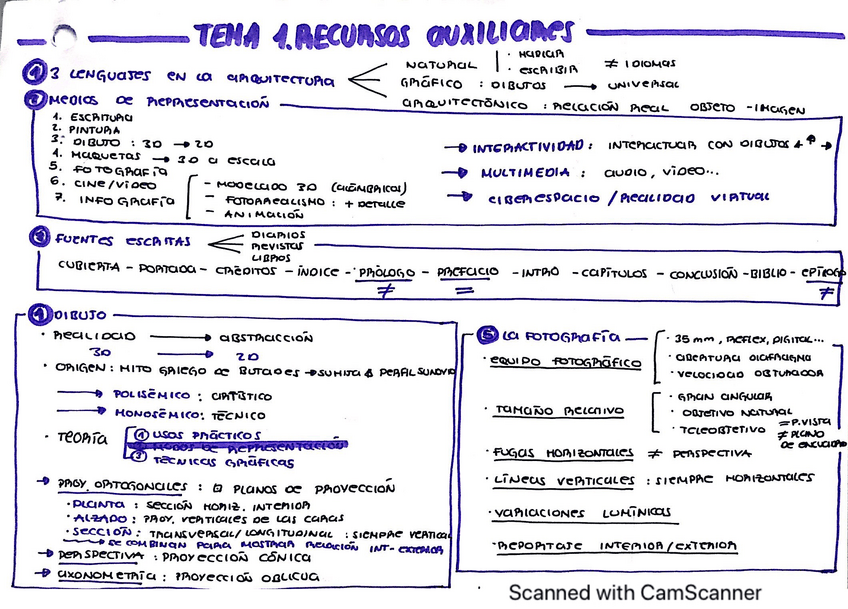 TEMA 1. RECURSOS AUXILIARES
① 3 LENGUAJES EN LA ARQUITECTURA
NATURAL · HABLAR
· ESCRIBIR ≠ IDIOMAS
GRÁFICO : DIBUJOS → UNIVERSAL
ARQUITECTÓNICO : RELACIÓN REAL OBJETO - IMAGEN
② MEDIOS DE REPRESENTACIÓN
1. ESCRITURA
2. PINTURA
3. DIBUJO : 3D → 2D
4. MAQUETAS → 3D a escala
5. FOTOGRAFÍA
6. CINE/VÍDEO
7. INFOGRAFÍA
- MODELADO 3D (ALÁMBRICOS)
- FOTORREALISMO : + DETALLE
- ANIMACIÓN
→ INTERACTIVIDAD : INTERACTUAR CON DIBUJOS
→ MULTIMEDIA : AUDIO, VÍDEO...
→ CIBERESPACIO / REALIDAD VIRTUAL
③ FUENTES ESCRITAS
DIARIOS
REVISTAS
LIBROS
CUBIERTA - PORTADA - CRÉDITOS - ÍNDICE - PRÓLOGO - PREFACIO - INTRO - CAPÍTULOS - CONCLUSIÓN - BIBLIO - EPÍLOGO
≠ = ≠
④ DIBUJO
· REALIDAD → ABSTRACCIÓN
3D → 2D
· ORIGEN : MITO GRIEGO DE BUTADES →
→ POLISÉMICO : ARTÍSTICO
→ MONOSÉMICO : TÉCNICO
· TEORÍA
① USOS PRÁCTICOS
② MODOS DE REPRESENTACIÓN
③ TÉCNICAS GRÁFICAS
→ PROY. ORTOGONALES : PLANOS DE PROYECCIÓN
· PLANTA : SECCIÓN HORIZ. INTERIOR
· ALZADO : PROY. VERTICALES DE LAS CARAS
· SECCIÓN : TRANSVERSAL/LONGITUDINAL : SIEMPRE VERTICAL
→ SE COMBINAN PARA MOSTRAR RELACIÓN INT-EXTERIOR
→ PERSPECTIVA : PROYECCIÓN CÓNICA
→ AXONOMETRÍA : PROYECCIÓN OBLICUA
⑤ LA FOTOGRAFÍA
· EQUIPO FOTOGRÁFICO
· 35 mm, REFLEX, DIGITAL...
· ABERTURA DIAFRAGMA
· VELOCIDAD OBTURADOR
· TAMAÑO RELATIVO
· GRAN ANGULAR
· OBJETIVO NATURAL
· TELEOBJETIVO
= P. VISTA
≠ PLANO
DE ENCUADRE
· FUGAS HORIZONTALES ≠ PERSPECTIVA
· LÍNEAS VERTICALES : SIEMPRE HORIZONTALES
· VARIACIONES LUMÍNICAS
· REPORTAJE INTERIOR/EXTERIOR
Scanned with CamScanner